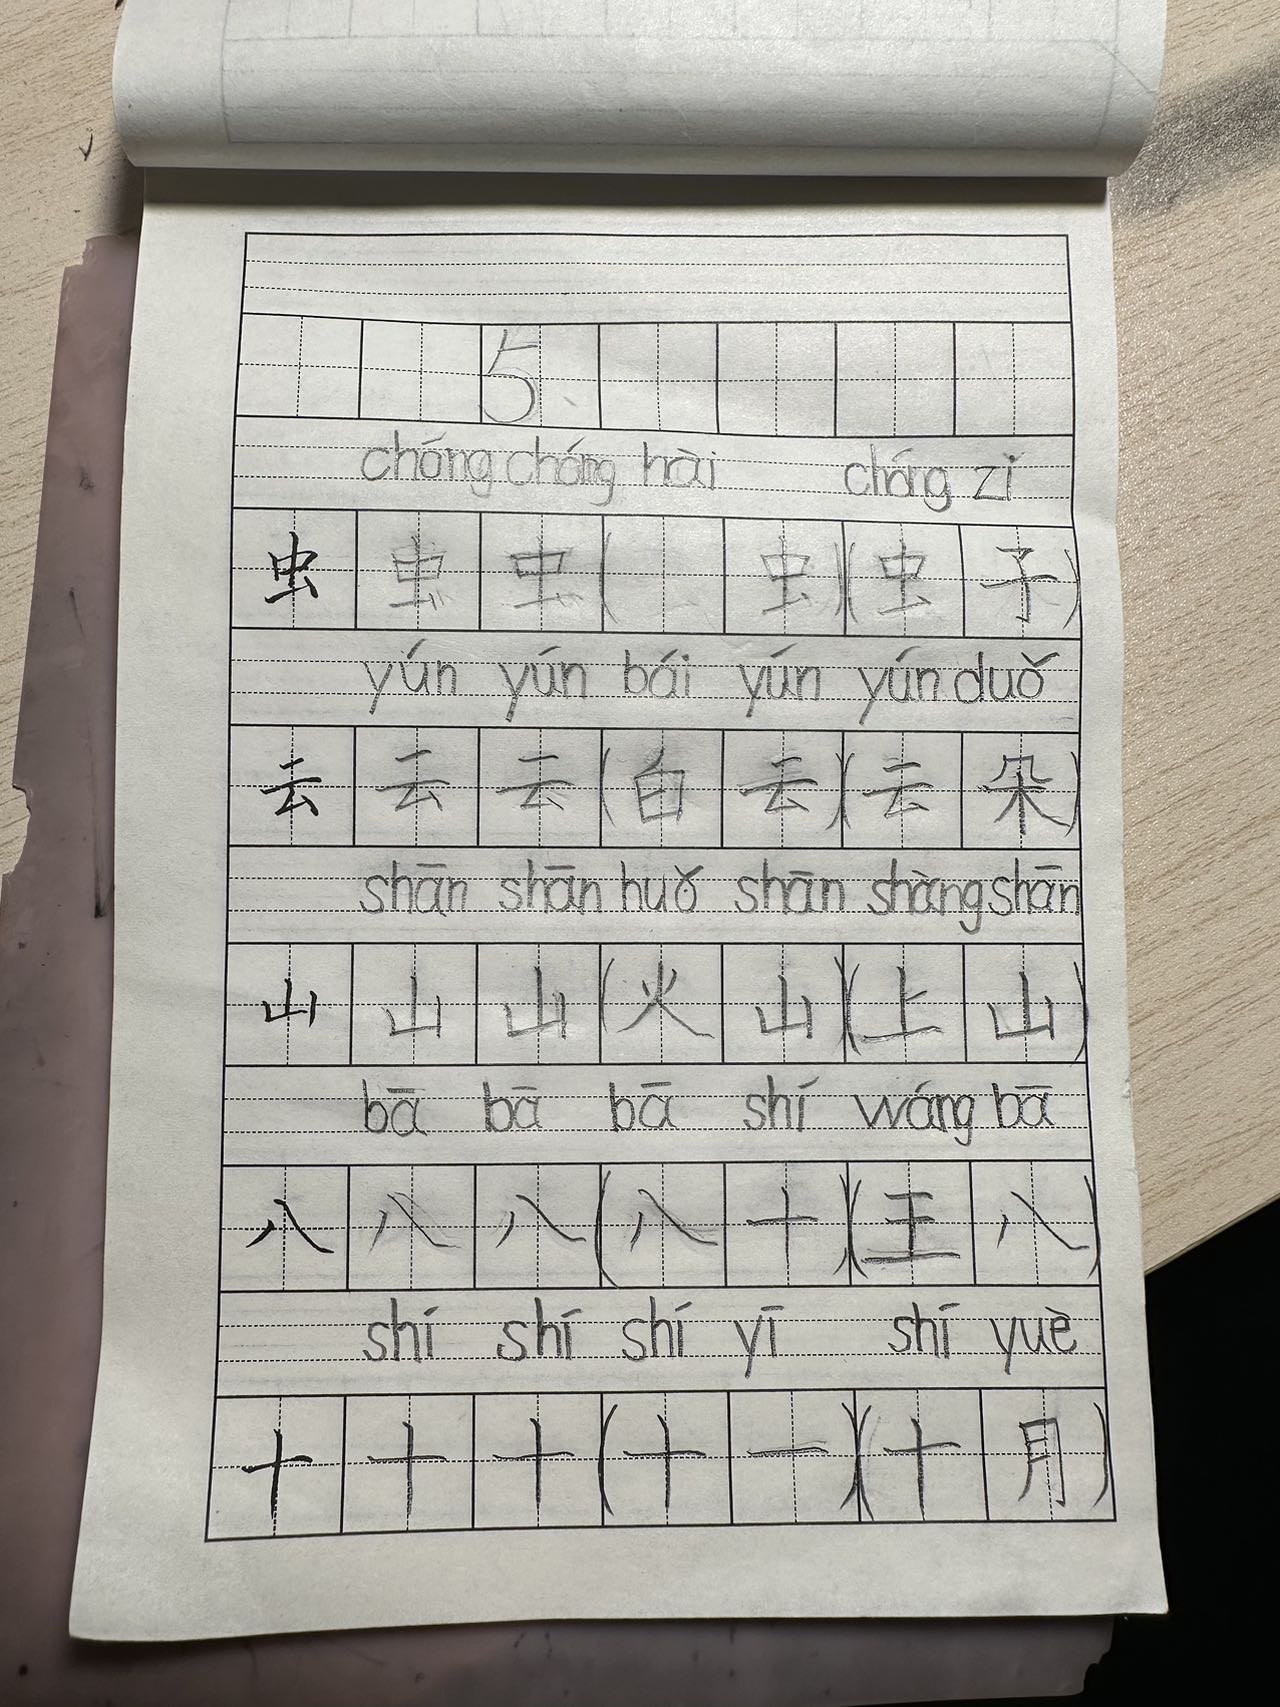 5
chóng chóng hài chóng zǐ
虫 虫 虫 ( 虫 ) ( 虫 子 )
yún yún bái yún yún duǒ
云 云 云 ( 白 云 ) ( 云 朵 )
shān shān huǒ shān shàng shān
山 山 山 ( 火 山 ) ( 上 山 )
bā bā bā shí wáng bā
八 八 八 ( 八 十 ) ( 王 八 )
shí shí shí yī shí yuè
十 十 十 ( 十 一 ) ( 十 月 )